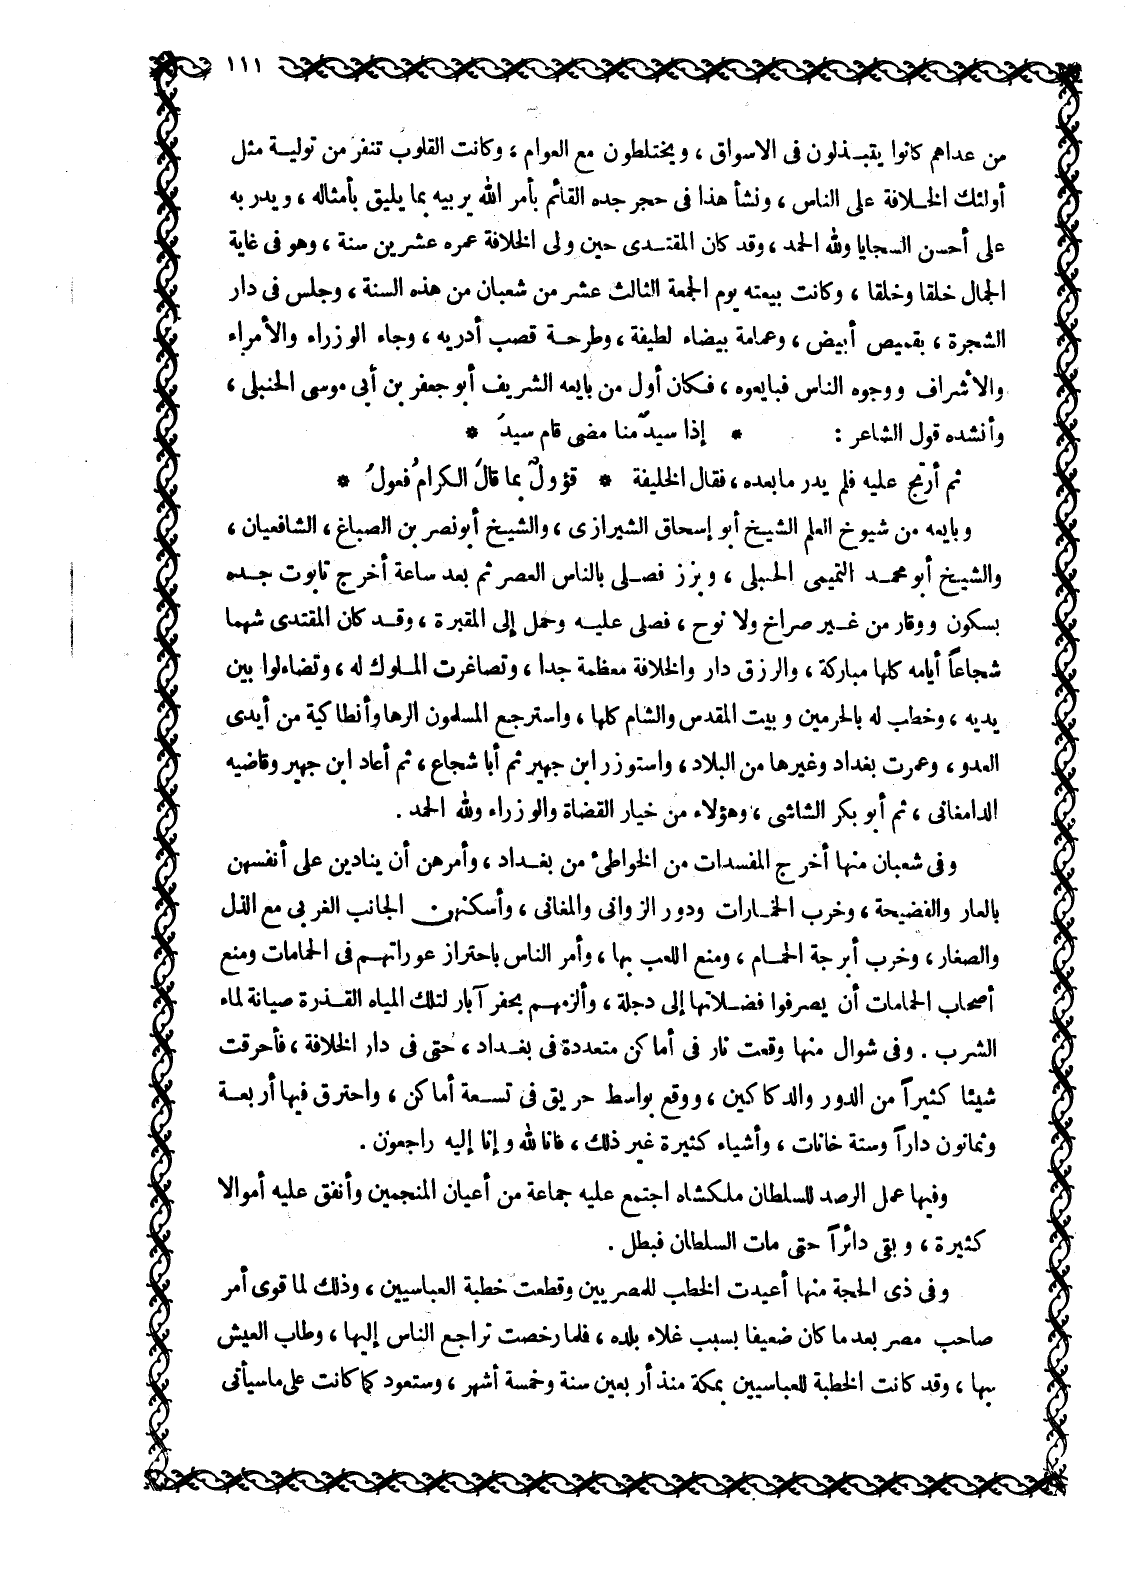 ١١١
من عداهم كانوا يقبـذلون فى الاسواق ، ويختلطون مع العوام ، وكانت القلوب تنفر من توليـة مثل
أولئك الخـلافة على الناس ، ونشأ هذا فى حجر جده القائم بأمر الله يربيه بما يليق بأمثاله ، ويدر به
على أحسن السجايا ولله الحمد ، وقد كان المقتـدى حين ولى الخلافة عمره عشرين سنة ، وهو فى غاية
الجمال خلقا وخلقا ، وكانت بيعته يوم الجمعة الثالث عشر من شعبان من هذه السنة ، وجلس فى دار
الشجرة ، بقميص أبيض ، وعمامة بيضاء لطيفة ، وطرحـة قصب أدريه ، وجاء الوزراء والأمراء
والأشراف ووجوه الناس فبايعوه ، فـكان أول من بايعه الشريف أبو جعفر بن أبى موسى الحنبلى ،
وأنشده قول الشاعر : * إذا سيدٌ منا مضى قام سيدَ *
ثم أرتج عليه فلم يدر ما بعده ، فقال الخليفة * قؤولٌ بما قالَ الكرامُ فعولُ *
وبايعه من شيوخ العلم الشيخ أبو إسحاق الشيرازى ، والشيخ أبونصر بن الصباغ ، الشافعيان ،
والشيـخ أبو محمـد التميمى الحنبلى ، وبرز فصـلى بالناس العصر ثم بعد ساعة أخرج تابوت جـده
بسكون ووقار من غـير صراخ ولا نوح ، فصلى عليـه وحمل إلى المقبرة ، وقـد كان المقتدى شهما
شجاعاً أيامه كلها مباركة ، والرزق دار والخلافة معظمة جدا ، وتصاغرت المـلوك له ، وتضاءلوا بين
يديه ، وخطب له بالحرمين وبيت المقدس والشام كلها ، واسترجع المسلمون الرها وأنطاكية من أيدى
العدو ، وعمرت بغداد وغيرها من البلاد ، واستوزر ابن جهير ثم أبا شجاع ، ثم أعاد ابن جهير وقاضيه
الدامغانى ، ثم أبو بكر الشاشى ، وهؤلاء من خيار القضاة والوزراء ولله الحمد .
وفى شعبان منها أخرج المفسدات من الخواطئ من بغـداد ، وأمرهن أن ينادين على أنفسهن
بالعار والفضيحة ، وخرب الخمـارات ودور الزوانى والمغانى ، وأسكنهن الجانب الغربى مع الذل
والصغار ، وخرب أبرجة الحمـام ، ومنع اللعب بها ، وأمر الناس باحتراز عوراتهـم فى الحمامات ومنع
أصحاب الحمامات أن يصرفوا فضـلاتها إلى دجلة ، وألزمهـم بحفر آبار لتلك المياه القـذرة صيانة لماء
الشرب . وفى شوال منها وقعت نار فى أماكن متعددة فى بغـداد ، حتى فى دار الخلافة ، فأحرقت
شيئا كثيراً من الدور والدكاكين ، ووقع بواسط حريق فى تسـعة أماكن ، واحترق فيها أربعـة
وثمانون داراً وستة خانات ، وأشياء كثيرة غير ذلك ، فانا لله وإنا إليه راجعون .
وفيها عمل الرصد للسلطان ملكشاه اجتمع عليه جماعة من أعيان المنجمين وأنفق عليه أموالا
كثيرة ، وبقى دائراً حتى مات السلطان فبطل .
وفى ذى الحجة منها أعيدت الخطب للمصريين وقطعت خطبة العباسيين ، وذلك لما قوى أمر
صاحب مصر بعد ما كان ضعيفا بسبب غلاء بلده ، فلما رخصت تراجع الناس إليها ، وطاب العيش
بها ، وقد كانت الخطبة للعباسيين بمكة منذ أربعين سنة وخمسة أشهر ، وستعود كما كانت على ما سيأتى